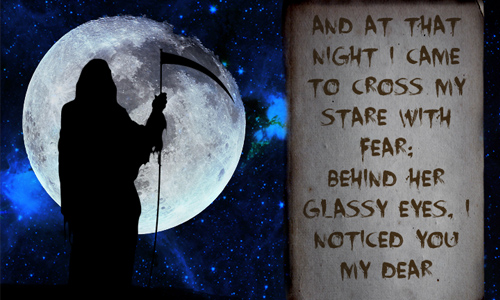 AND AT THAT
NIGHT I CAME
TO CROSS MY
STARE WITH
FEAR;
BEHIND HER
GLASSY EYES, I
NOTICED YOU
MY DEAR.